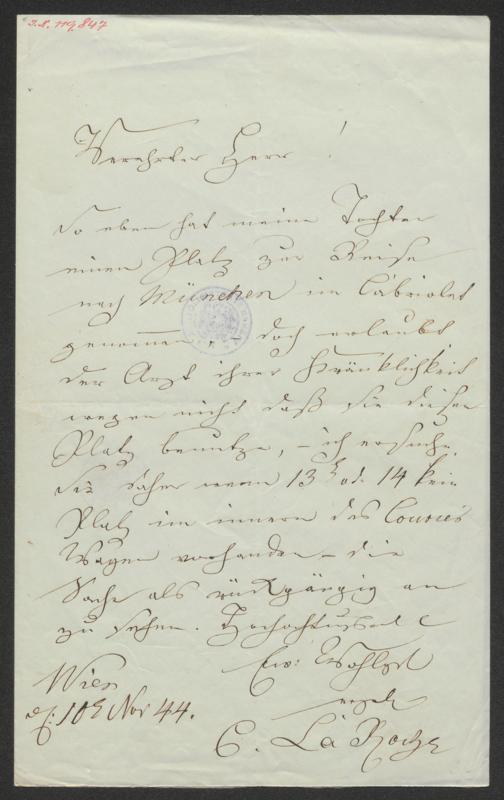 I.N. 119.847
Verehrter Herr!
So eben hat meine Tochter
einen Platz zur Reise
nach München im Cabriolet
genommen, – doch erlaubt
der Arzt ihrer Kränklichkeit
wegen nicht daß sie diesen
Platz benutze, – ich ersuche
Sie daher wenn 13t od. 14 kein
Platz im innern des Couriers
Wagen vorhanden – die
Sache als rückgängig an
zu sehen. Hochachtungsvoll
Ew: Wohlgb
Wien
d: 10t Nov 44.
C. La Roche